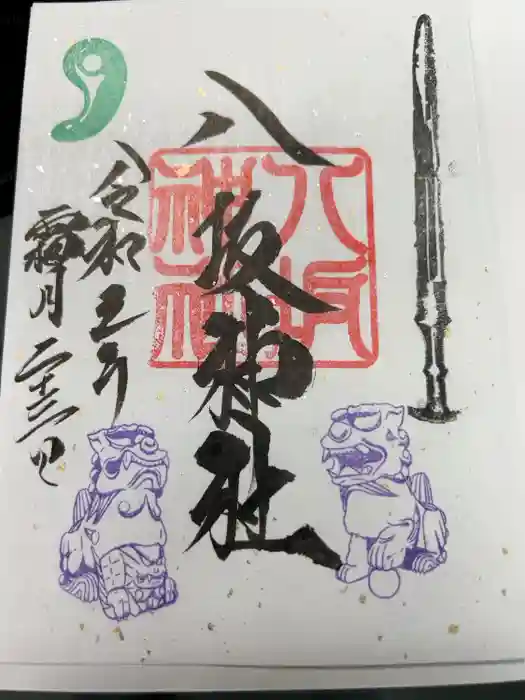 八坂神社
八坂
神社
令和五年
霜月二十三日